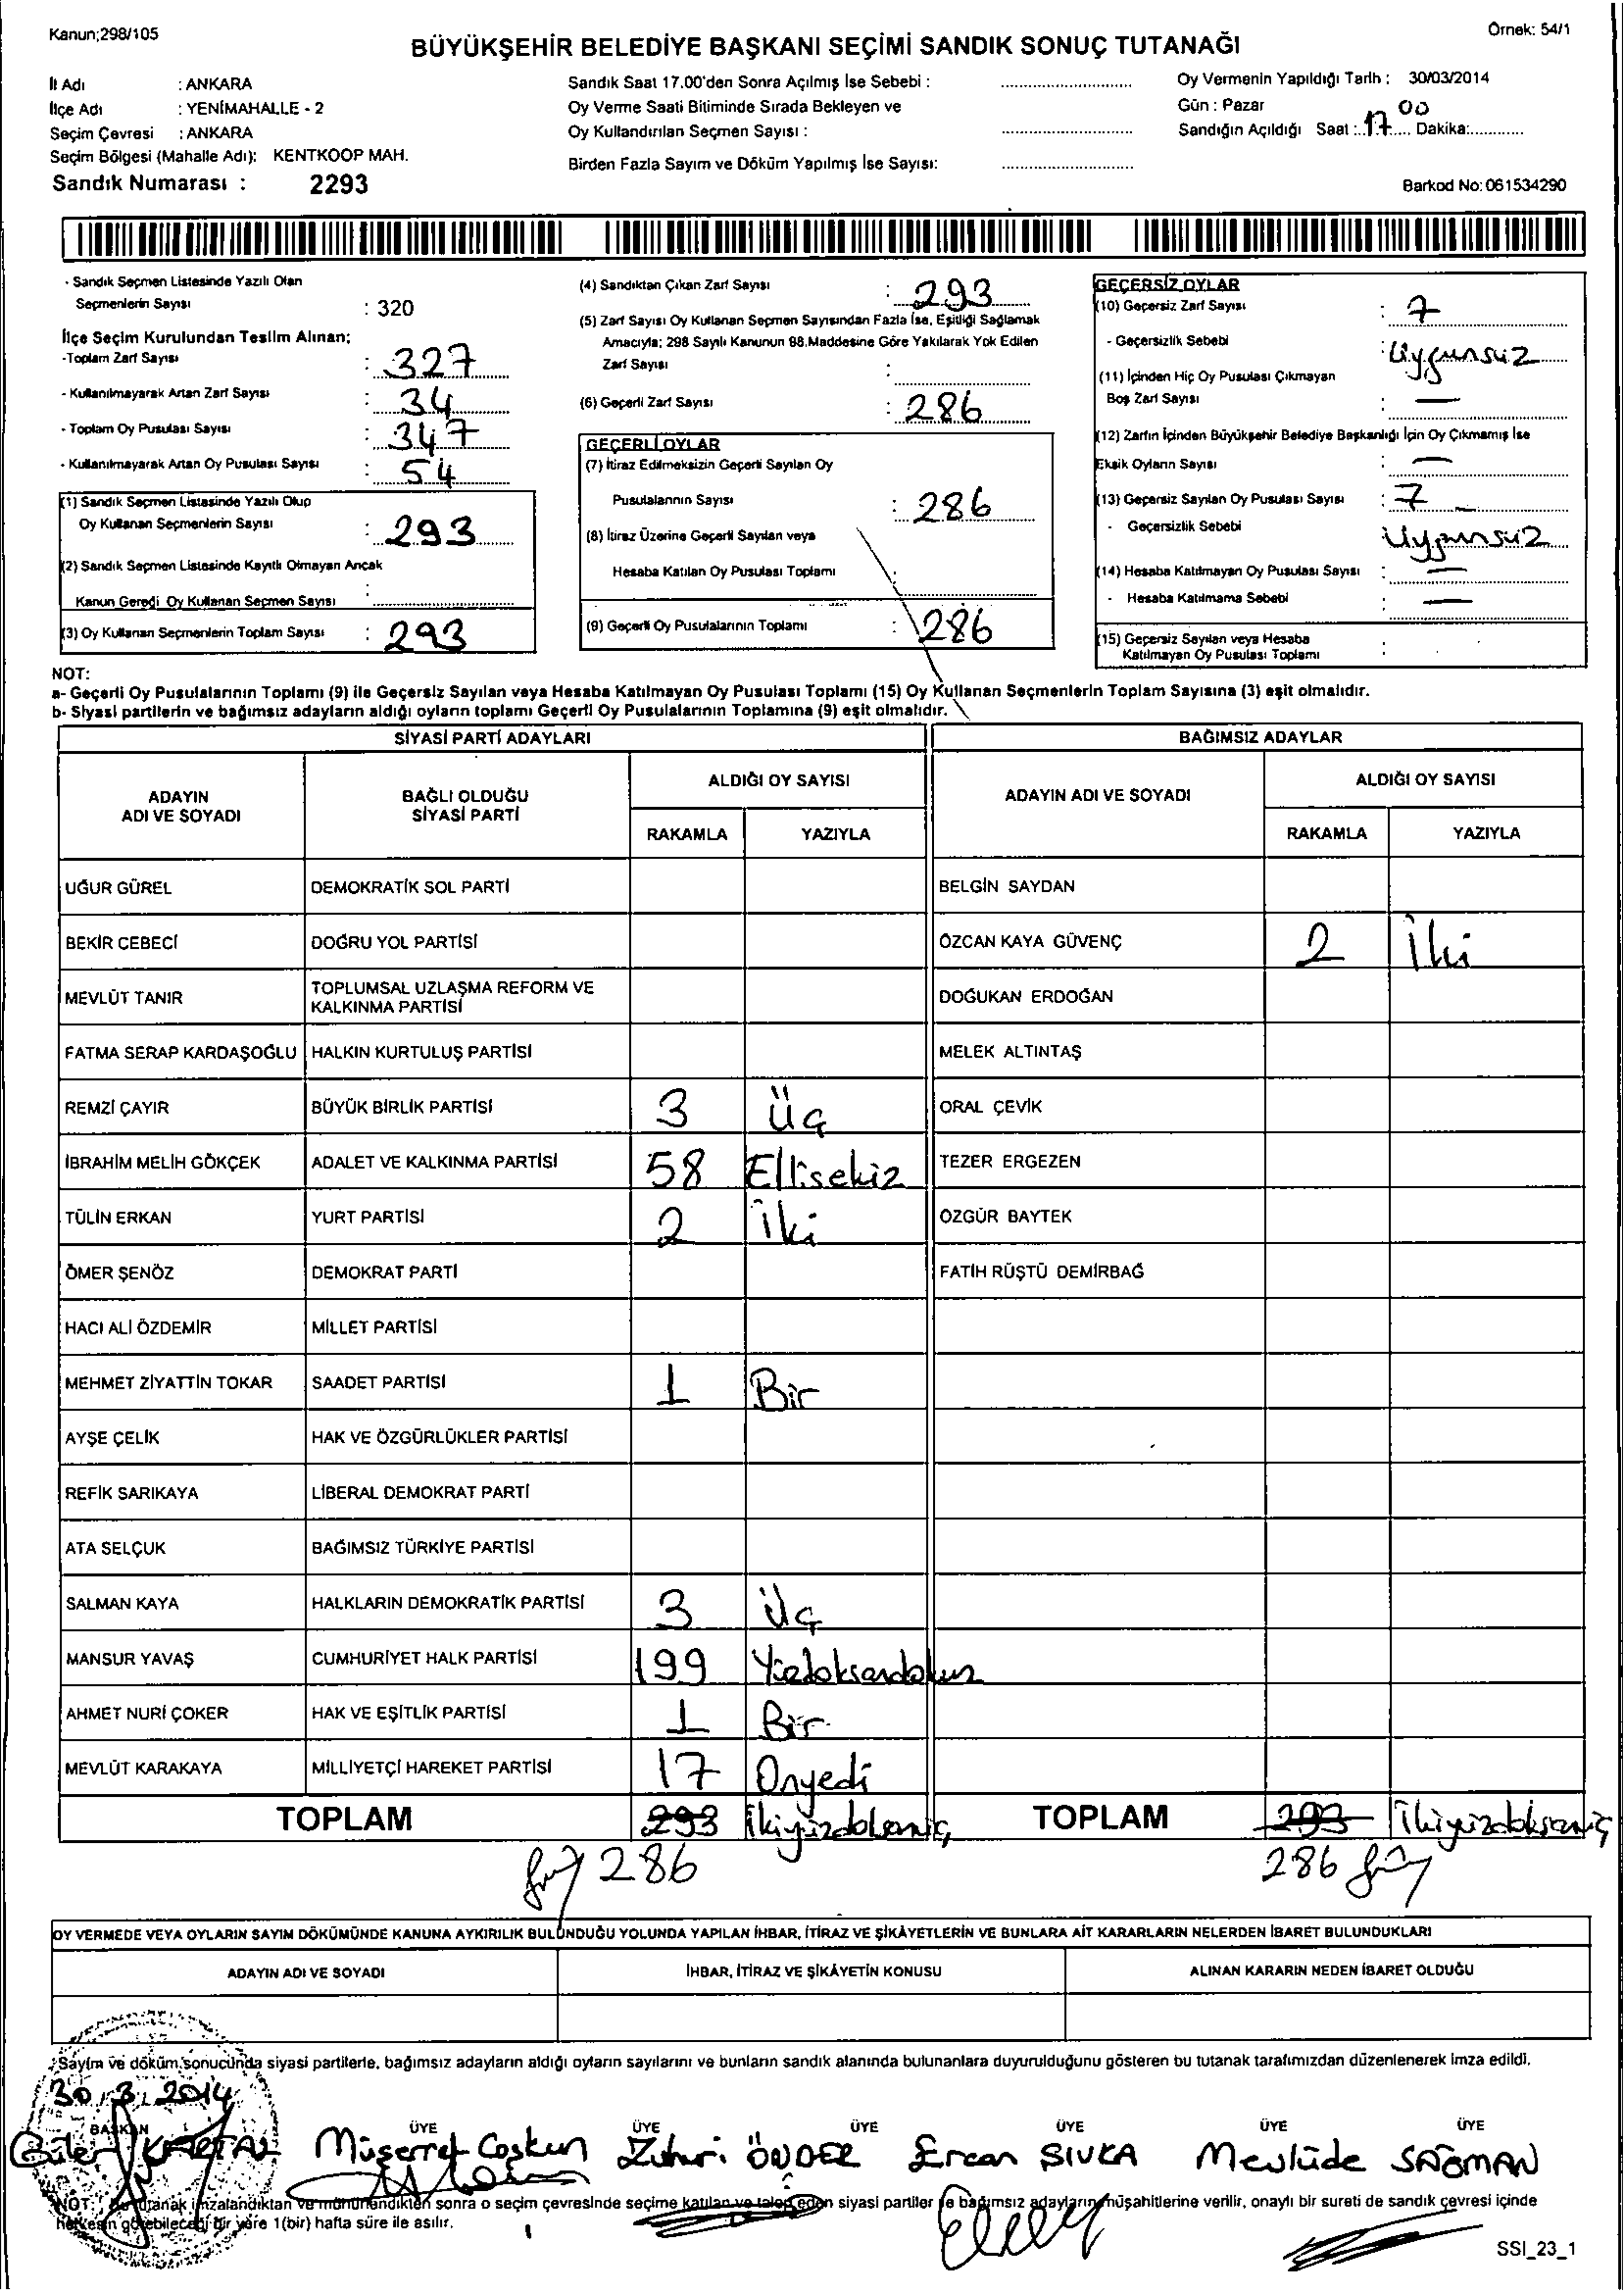 Kanun;298/105
Örnek: 54/1
BÜYÜKŞEHİR BELEDİYE BAŞKANI SEÇİMİ SANDIK SONUÇ TUTANAĞI
İl Adı : ANKARA
İlçe Adı : YENİMAHALLE - 2
Seçim Çevresi : ANKARA
Seçim Bölgesi (Mahalle Adı): KENTKOOP MAH.
Sandık Numarası : 2293
Sandık Saat 17.00'den Sonra Açılmış İse Sebebi :
Oy Verme Saati Bitiminde Sırada Bekleyen ve
Oy Kullandırılan Seçmen Sayısı :
Birden Fazla Sayım ve Döküm Yapılmış İse Sayısı:
Oy Vermenin Yapıldığı Tarih : 30/03/2014
Gün : Pazar
Sandığın Açıldığı Saat : 17 Dakika: 00
Barkod No: 061534290
- Sandık Seçmen Listesinde Yazılı Olan
Seçmenlerin Sayısı : 320
İlçe Seçim Kurulundan Teslim Alınan;
-Toplam Zarf Sayısı : 327
- Kullanılmayarak Artan Zarf Sayısı : 34
- Toplam Oy Pusulası Sayısı : 347
- Kullanılmayarak Artan Oy Pusulası Sayısı : 54
(1) Sandık Seçmen Listesinde Yazılı Olup
Oy Kullanan Seçmenlerin Sayısı : 293
(2) Sandık Seçmen Listesinde Kayıtlı Olmayan Ancak
Kanun Gereği Oy Kullanan Seçmen Sayısı :
(3) Oy Kullanan Seçmenlerin Toplam Sayısı : 293
(4) Sandıktan Çıkan Zarf Sayısı : 293
(5) Zarf Sayısı Oy Kullanan Seçmen Sayısından Fazla İse, Eşitliği Sağlamak
Amacıyla; 298 Sayılı Kanunun 98.Maddesine Göre Yakılarak Yok Edilen
Zarf Sayısı :
(6) Geçerli Zarf Sayısı : 286
GEÇERLİ OYLAR
(7) İtiraz Edilmeksizin Geçerli Sayılan Oy
Pusulalarının Sayısı : 286
(8) İtiraz Üzerine Geçerli Sayılan veya
Hesaba Katılan Oy Pusulası Toplamı :
(9) Geçerli Oy Pusulalarının Toplamı : 286
GEÇERSİZ OYLAR
(10) Geçersiz Zarf Sayısı : 7
- Geçersizlik Sebebi : Uygunsuz
(11) İçinden Hiç Oy Pusulası Çıkmayan
Boş Zarf Sayısı : —
(12) Zarfın İçinden Büyükşehir Belediye Başkanlığı İçin Oy Çıkmamış İse
Eksik Oyların Sayısı : —
(13) Geçersiz Sayılan Oy Pusulası Sayısı : 7
- Geçersizlik Sebebi Uygunsuz
(14) Hesaba Katılmayan Oy Pusulası Sayısı : —
- Hesaba Katılmama Sebebi : —
(15) Geçersiz Sayılan veya Hesaba
Katılmayan Oy Pusulası Toplamı :
NOT:
a- Geçerli Oy Pusulalarının Toplamı (9) ile Geçersiz Sayılan veya Hesaba Katılmayan Oy Pusulası Toplamı (15) Oy Kullanan Seçmenlerin Toplam Sayısına (3) eşit olmalıdır.
b- Siyasi partilerin ve bağımsız adayların aldığı oyların toplamı Geçerli Oy Pusulalarının Toplamına (9) eşit olmalıdır.
SİYASİ PARTİ ADAYLARI BAĞIMSIZ ADAYLAR
ADAYIN ADI VE SOYADI BAĞLI OLDUĞU SİYASİ PARTİ ALDIĞI OY SAYISI ADAYIN ADI VE SOYADI ALDIĞI OY SAYISI
RAKAMLA YAZIYLA RAKAMLA YAZIYLA
UĞUR GÜREL DEMOKRATİK SOL PARTİ BELGİN SAYDAN
BEKİR CEBECİ DOĞRU YOL PARTİSİ ÖZCAN KAYA GÜVENÇ 2 İki
MEVLÜT TANIR TOPLUMSAL UZLAŞMA REFORM VE KALKINMA PARTİSİ DOĞUKAN ERDOĞAN
FATMA SERAP KARDAŞOĞLU HALKIN KURTULUŞ PARTİSİ MELEK ALTINTAŞ
REMZİ ÇAYIR BÜYÜK BİRLİK PARTİSİ 3 Üç ORAL ÇEVİK
İBRAHİM MELİH GÖKÇEK ADALET VE KALKINMA PARTİSİ 58 Ellisekiz TEZER ERGEZEN
TÜLİN ERKAN YURT PARTİSİ 2 İki ÖZGÜR BAYTEK
ÖMER ŞENÖZ DEMOKRAT PARTİ FATİH RÜŞTÜ DEMİRBAĞ
HACI ALİ ÖZDEMİR MİLLET PARTİSİ
MEHMET ZİYATTİN TOKAR SAADET PARTİSİ 1 Bir
AYŞE ÇELİK HAK VE ÖZGÜRLÜKLER PARTİSİ
REFİK SARIKAYA LİBERAL DEMOKRAT PARTİ
ATA SELÇUK BAĞIMSIZ TÜRKİYE PARTİSİ
SALMAN KAYA HALKLARIN DEMOKRATİK PARTİSİ 3 Üç
MANSUR YAVAŞ CUMHURİYET HALK PARTİSİ 199 Yüzdoksandokuz
AHMET NURİ ÇOKER HAK VE EŞİTLİK PARTİSİ 1 Bir
MEVLÜT KARAKAYA MİLLİYETÇİ HAREKET PARTİSİ 17 Onyedi
TOPLAM 293 İkiyüzdoksanüç TOPLAM 293 İkiyüzdoksanüç
286 286
OY VERMEDE VEYA OYLARIN SAYIM DÖKÜMÜNDE KANUNA AYKIRILIK BULUNDUĞU YOLUNDA YAPILAN İHBAR, İTİRAZ VE ŞİKÂYETLERİN VE BUNLARA AİT KARARLARIN NELERDEN İBARET BULUNDUKLARI
ADAYIN ADI VE SOYADI İHBAR, İTİRAZ VE ŞİKÂYETİN KONUSU ALINAN KARARIN NEDEN İBARET OLDUĞU
Sayım ve döküm sonucunda siyasi partilerle, bağımsız adayların aldığı oyların sayılarını ve bunların sandık alanında bulunanlara duyurulduğunu gösteren bu tutanak tarafımızdan düzenlenerek imza edildi.
30.3.2014
BAŞKAN ÜYE ÜYE ÜYE ÜYE ÜYE ÜYE
Güler KARTAL Müşerref Coşkun Zuhuri ÖNDER Ercan SIVKA Mevlüde SAĞMAN
NOT: Bu tutanak imzalandıktan ve mühürlendikten sonra o seçim çevresinde seçime katılan ve talep eden siyasi partiler ile bağımsız adayların müşahitlerine verilir, onaylı bir sureti de sandık çevresi içinde
herkesin görebileceği bir yere 1(bir) hafta süre ile asılır.
SSI_23_1